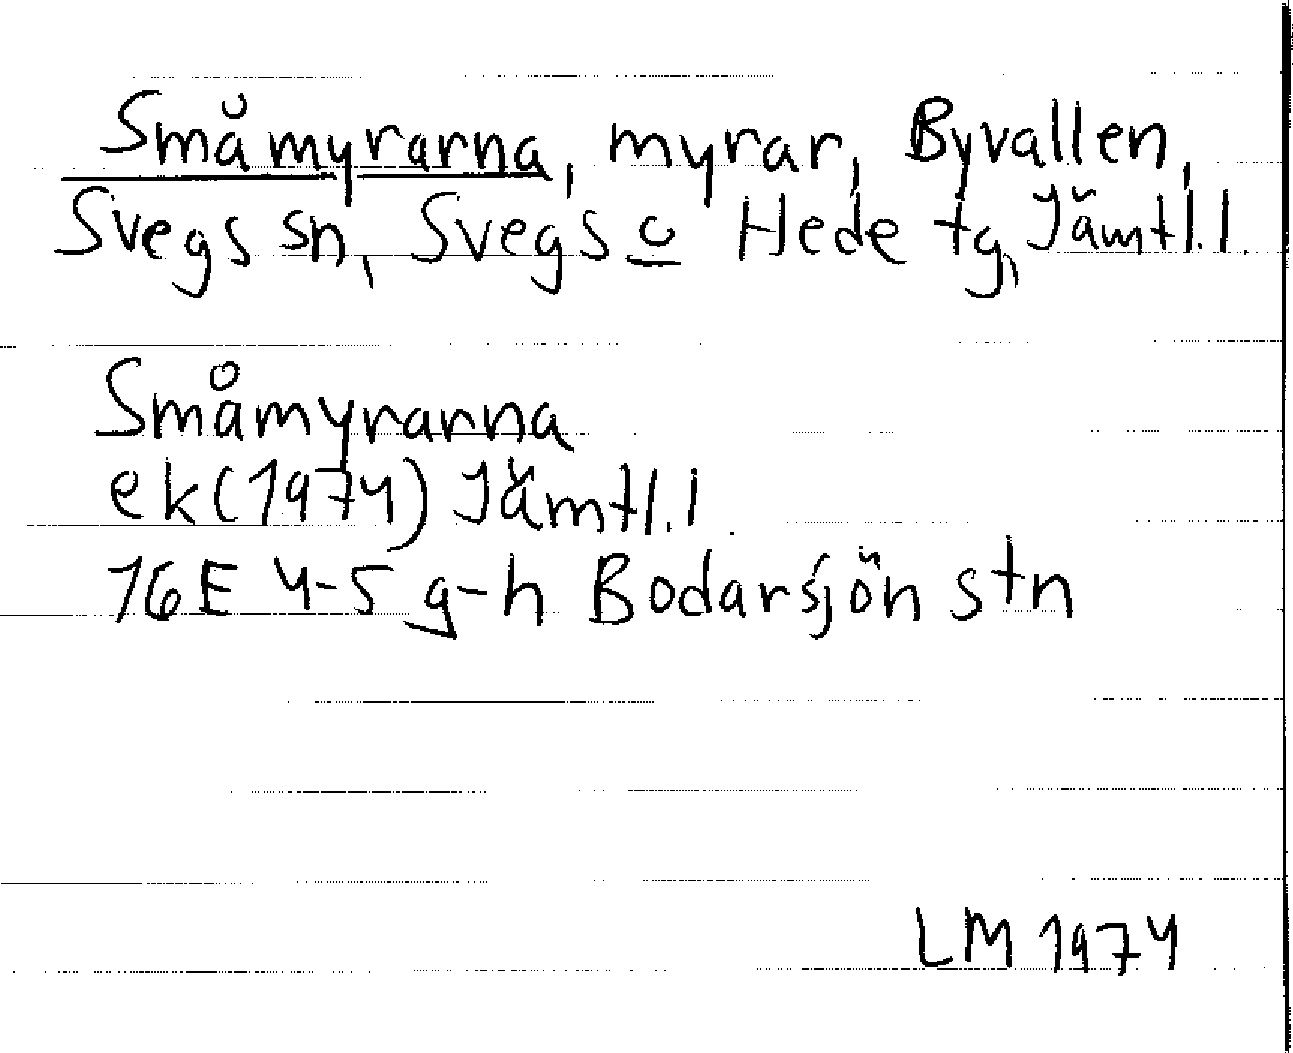 Småmyrarna, myrar, Byvallen,
Svegs sn, Svegs o Hede tg, Jämtl.l.
Småmyrarna
ek (1974) Jämtl.l.
16E 4-5 g-h Bodarsjön stn
LM 1974